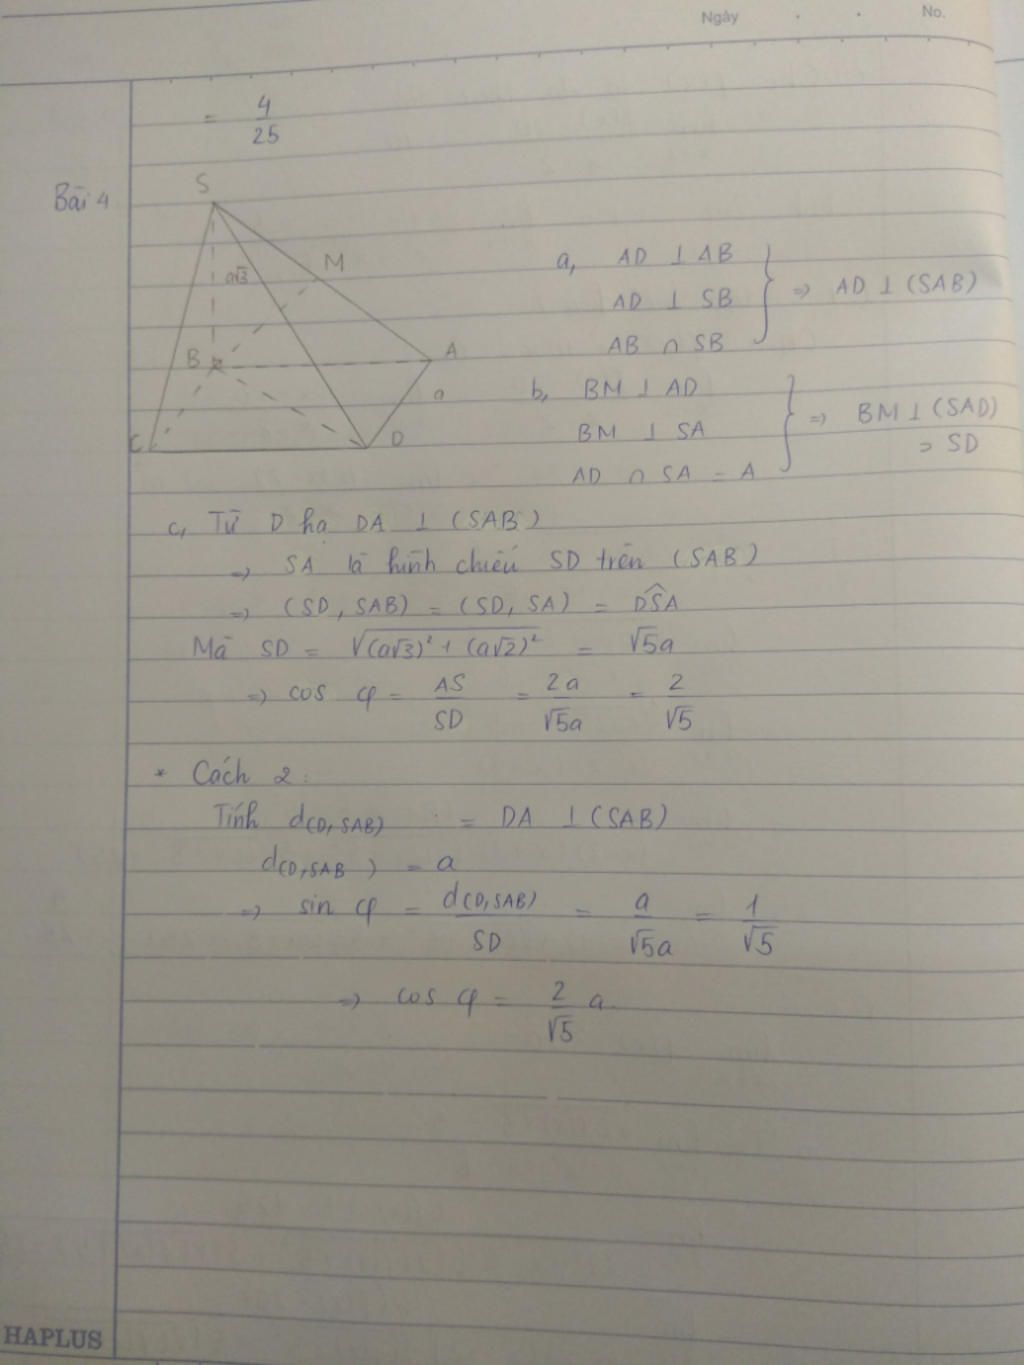 Ngày . . No.
= 4/25
Bài 4
S
M
a√3
B
A
a
C
D
a, AD ⊥ AB
AD ⊥ SB
AB ∩ SB
} => AD ⊥ (SAB)
b, BM ⊥ AD
BM ⊥ SA
AD ∩ SA = A
} => BM ⊥ (SAD)
⊃ SD
c, Từ D hạ DA ⊥ (SAB)
=> SA là hình chiếu SD trên (SAB)
=> (SD, SAB) = (SD, SA) = DSA
Mà SD = √((a√3)² + (a√2)²) = √5a
=> cos φ = AS/SD = 2a/√5a = 2/√5
* Cách 2:
Tính d(D,SAB) = DA ⊥ (SAB)
d(D,SAB) = a
=> sin φ = d(D,SAB)/SD = a/√5a = 1/√5
=> cos φ = 2/√5 a.
HAPLUS